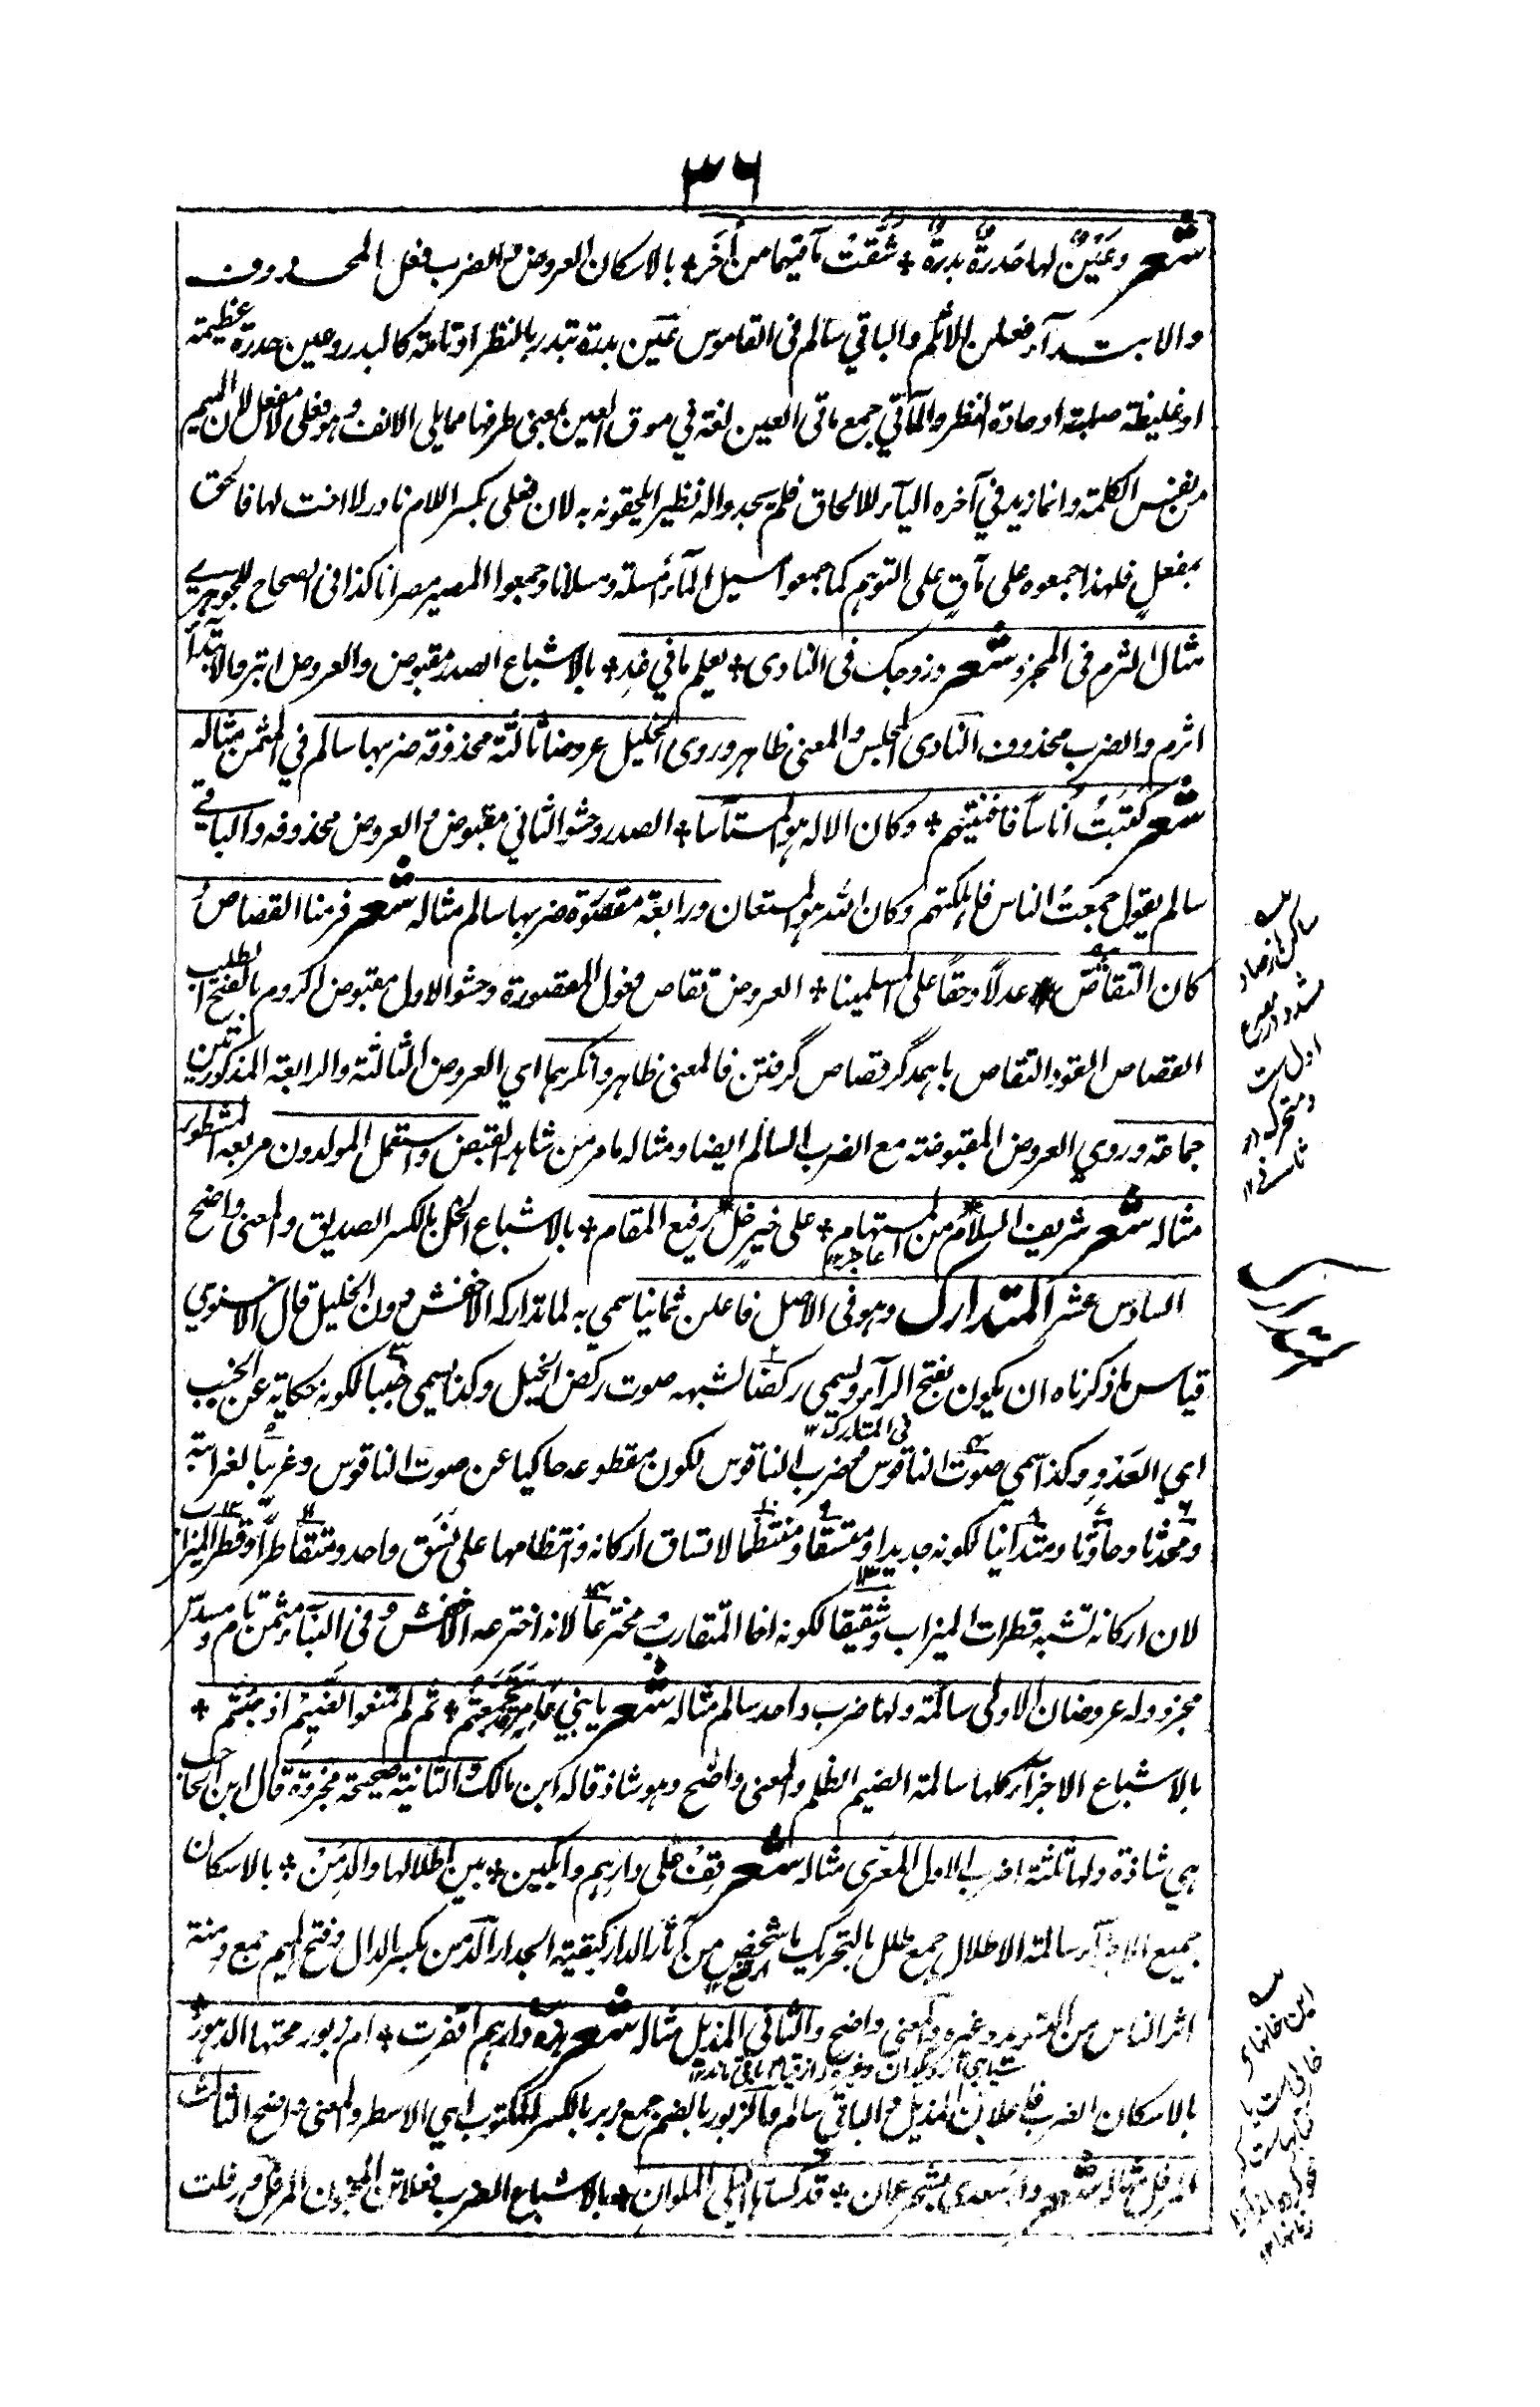 ٣٦
شعر وعَيْنٌ لها حَدرةٌ بدرةٌ * شُقَّت مآقيهما من أُخَر * بالاسكان العروض والضرب فعل المحذوف
والابتداء فعلن الاثلم والباقي سالم فى القاموس عَين بدرة تبدر بالنظر او تامة كالبدر وعين حدرة عظيمة
او غليظة صلبة او حادة النظر والمآقي جمع ماقى العين لغة في موق العين بمعنى طرفها مما يلى الانف وهو فعلى لا مفعل لان الميم
من نفس الكلمة وانما زيد في آخره الياء للالحاق فلم يجدوا له نظيرا يلحقونه به لان فعلى بكسر اللام نادر لا اخت لها فالحق
بمفعل فلهذا جمعوه على مآقٍ على التوهم كما جمعوا مسيل المآء امسلة ومسلانا وجمعوا المصير مصرانا كذا فى الصحاح للجوهرے
مثال الثرم فى المجزو شعر وزوجك فى النادى * يعلم ما في غدِ * بالاشباع الصدر مقبوض والعروض ابتر والابتدآء
اثرم والضرب محذوف النادى المجلس والمعنى ظاهر وروى الخليل عروضا ثالثة محذوفة ضربها سالم في المثمن مثاله
شعر كتبتُ اُناساً فافنيتهم * وكان الاله هو المستآسا * الصدر وحشو الثاني مقبوض والعروض محذوفه والباقے
سالم يقول جمعتُ الناس فاهلكتهم وكان الله هو المستعان ورابعة مقصورة ضربها سالم مثاله شعر فرمنا القصاصُ
كان التقاصّ * عدلاً وحقاً على المسلمينا * العروض تقاص فعول المقصورة وحشو الاول مقبوض الروم بالفتح الطلب
القصاص القود التقاص با همدگر قصاص گرفتن فالمعنى ظاهر وانكرهما اي العروض الثالثة والرابعة المذكورتين
جماعة وروي العروض المقبوضة مع الضرب السالم ايضا ومثاله ما مر من شاهد القبض واستعمل المولدون مربعه المشطور
مثاله شعر شريف السلام من المستهام * على خير خل رفيع المقام * بالاشباع الخل بالكسر الصديق والمعنى واضح
السادس عشر المتدارك وهو فى الاصل فاعلن ثمانيا سمي به لما تداركه الاخفش دون الخليل قال الاسنوي
قياس ما ذكرناه ان يكون بفتح الراء ويسمى ركضا لشبهه صوت ركض الخيل وكذا يسمى خببا لكونه حكاية عن الخبب
اي العَدْوِ وكذا سمي صوت الناقوس وضرب الناقوس لكون مقطوعه حاكيا عن صوت الناقوس وغريبا لغرابته
ومُحدَثا وحادثا ومتدانيا لكونه جديدا ومتسقا ومنتظما لاتساق اركانه وانتظامها على نسق واحد ومتقاطرا وقطر الميزاب
لان اركانه تشبه قطرات الميزاب وشقيقا لكونه اخا المتقارب ومخترعا لانه اخترعه الاخفش وفى البناء مثمن تام ومسدس
مجزو وله عروضان الاولى سالمة ولها ضرب واحد سالم مثاله شعر يا بني عامر قد جمعتم * ثم لم تمنعوا الضيم اذ جئتم *
بالاشباع الاجزآء كلها سالمة الضيم الظلم والمعنى واضح وهو شاذ قاله ابن مالك والثانية صحيحة مجزوة قال ابن الحاجب
هي شاذة ولها ثلثة اضرب الاول المعرّى مثاله شعر قِف على دارهم وابكين * بين اطلالها والدِمَن * بالاسكان
جميع الاجزآء سالمة الاطلال جمع طلل بالتحريك ما شخص من آثار الدار كبقية الجدار الدمن بكسر الدال وفتح الميم جمع دمنة
اثر الناس من السرقين وغيره والمعنى واضح والثاني المذيل مثاله شعر هذه دارهم اقفرت * ام زبور محتها الدهور
بالاسكان الضرب فاعلان المذيل والباقي سالم والزبور بالضم جمع زبر بالكسر المكتوب اي الاسطر والمعنى واضح الثالث
المرفل مثاله شعر دار سعدى بشحر عمان * قد كساها البلى الملوان * بالاشباع الضرب فعلاتن المخبون المرفل ورفلت